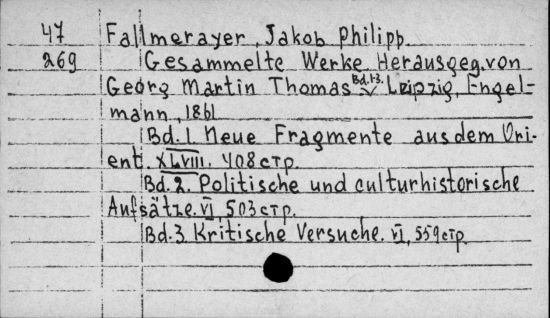 47 Fallmerayer, Jakob Philipp.
269 Gesammelte Werke. Herausgeg. von
Georg Martin Thomas Bd. 1-3. Leipzig, Engel-
mann, 1861
Bd. 1 Neue Fragmente aus dem Ori-
ent. XLVIII. 408 стр.
Bd. 2. Politische und culturhistorische
Aufsätze. VI, 503 стр.
Bd. 3. Kritische Versuche. VI, 559 стр.